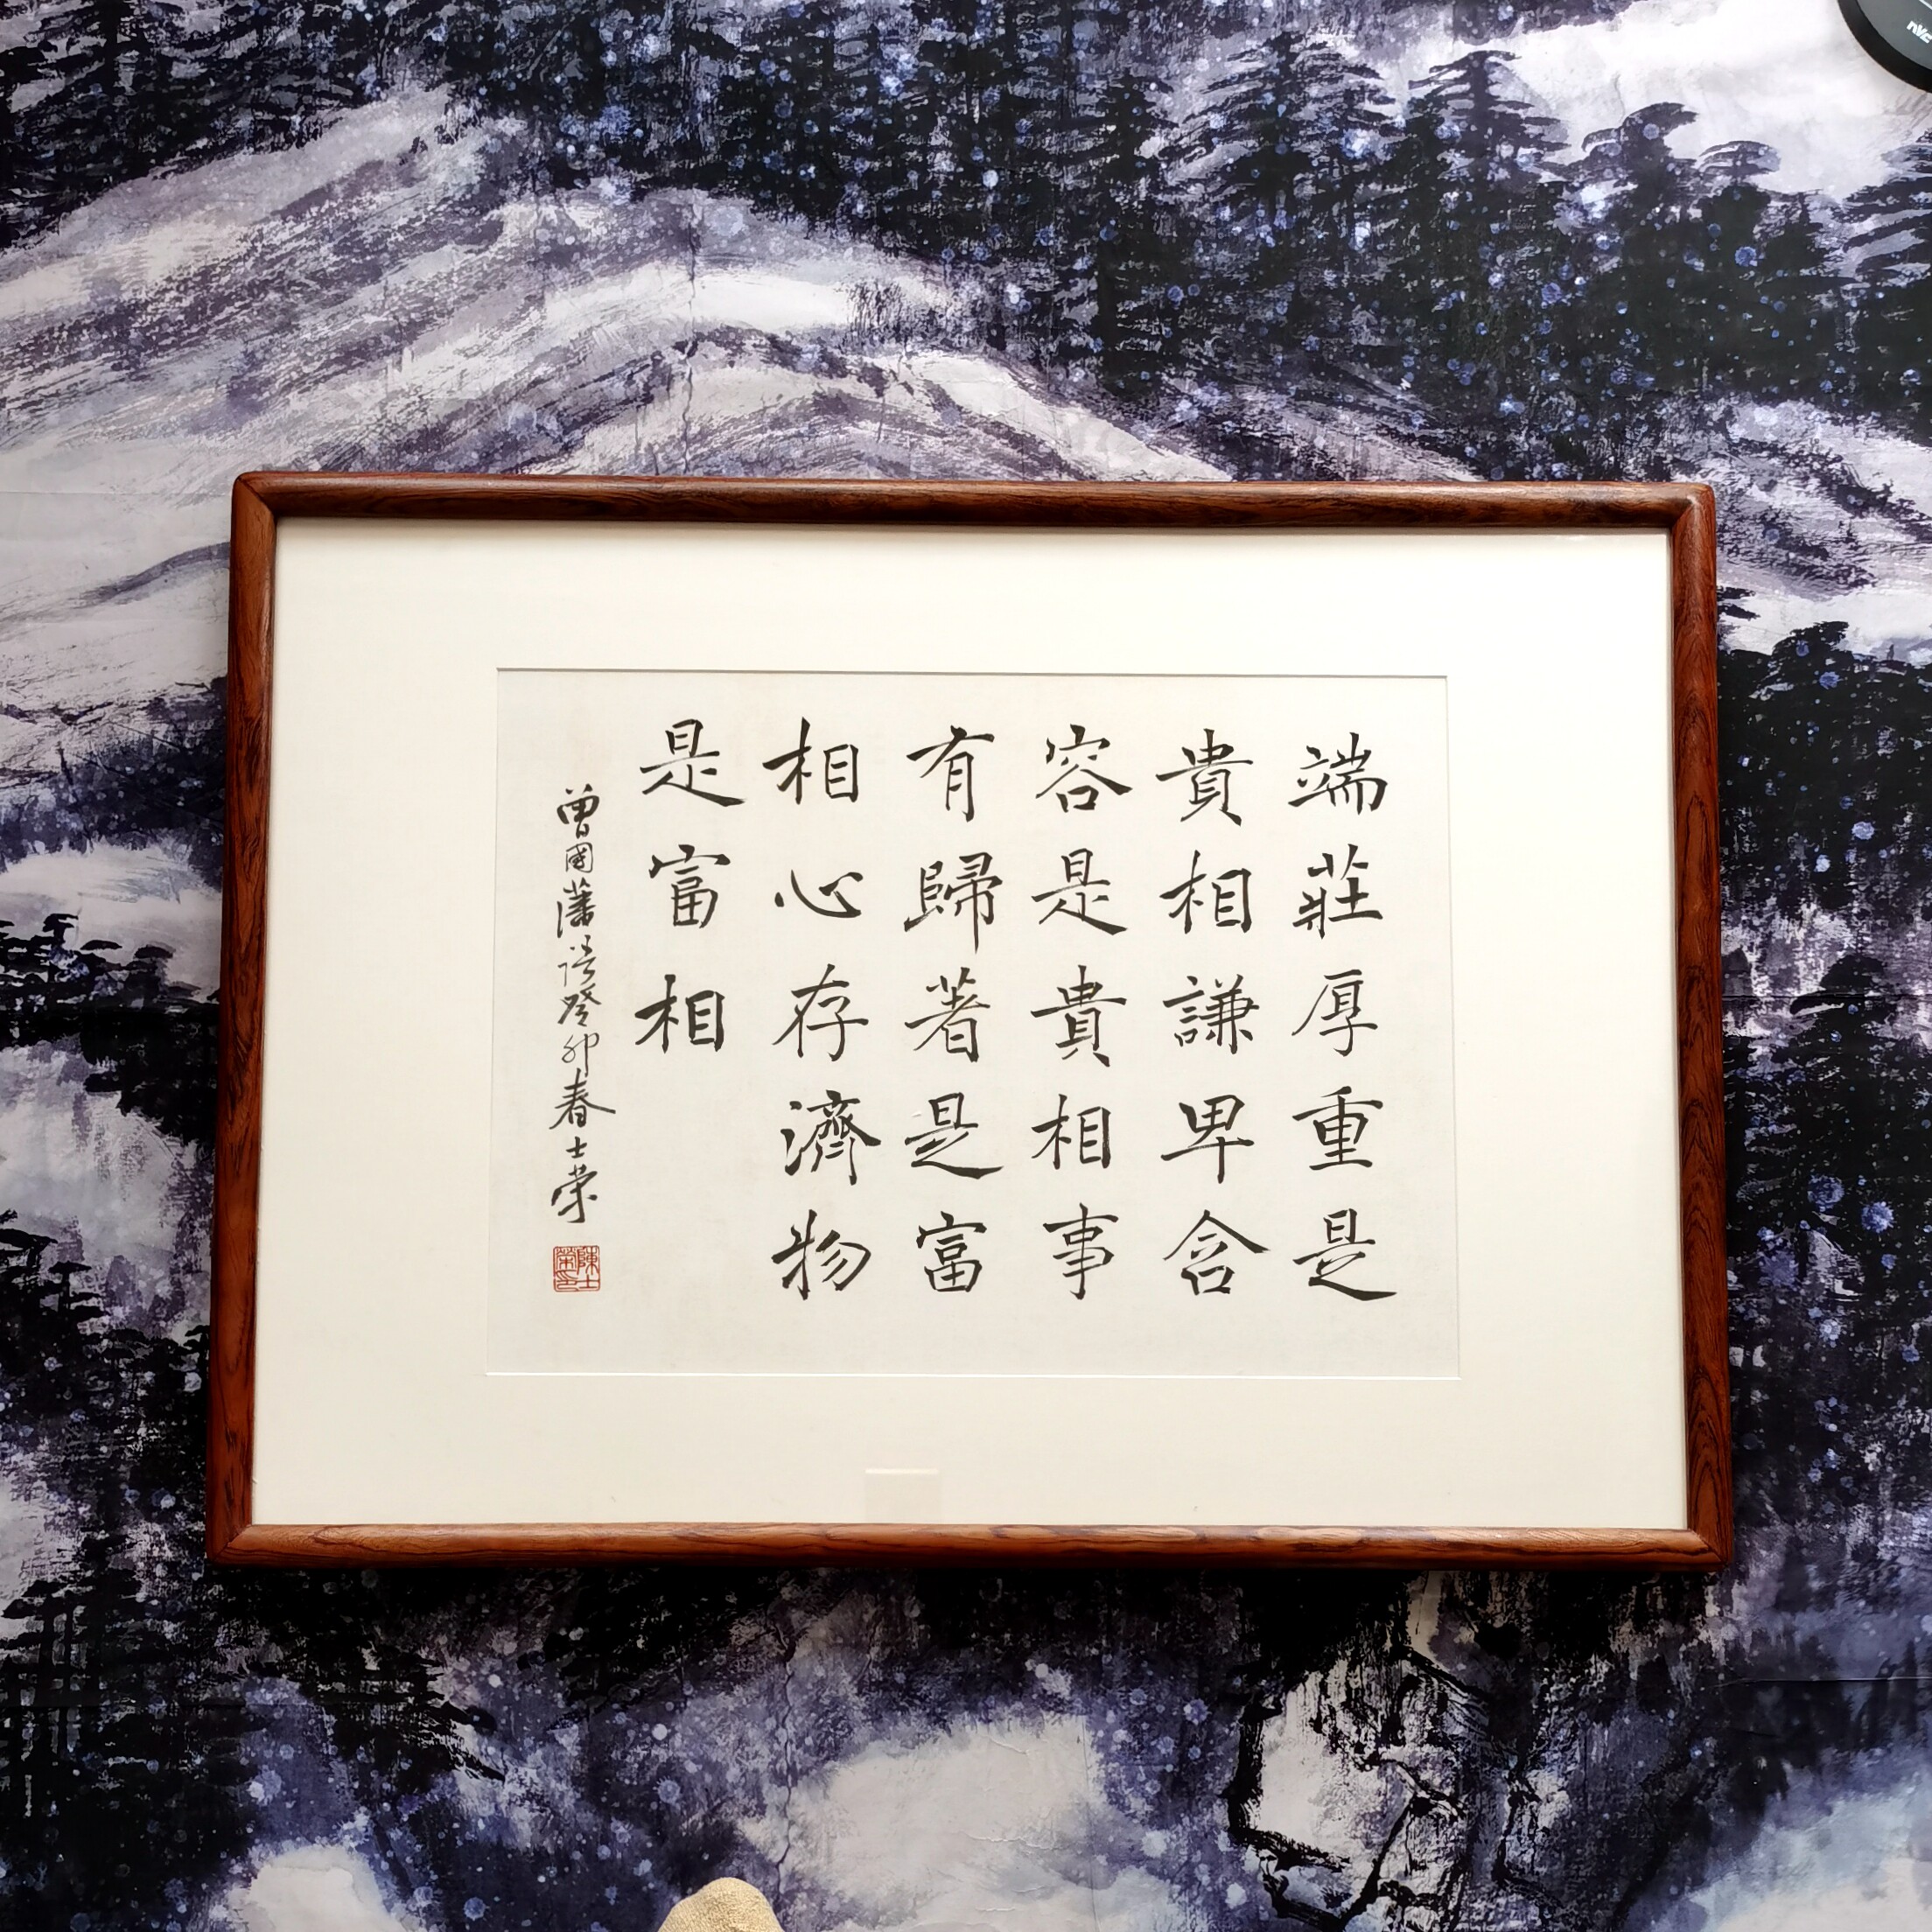 端莊厚重是
貴相謙卑含
容是貴相事
有歸著是富
相心存濟物
是富相
曾國藩語癸卯春士榮
陳士榮印